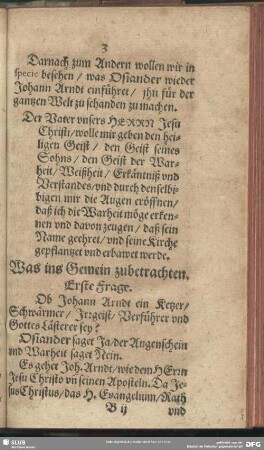 3
Darnach zum Andern wollen wir in
specie besehen / was Osiander wieder
Johann Arndt einführet / jhn für der
gantzen Welt zu schanden zu machen.
Der Vater vnsers HERRN Jesu
Christi / wolle mir geben den hei-
ligen Geist / den Geist seines
Sohns / den Geist der War-
heit / Weißheit / Erkäntniß vnd
Verstandes / vnd durch denselbi-
bigen mir die Augen eröffnen /
daß ich die Warheit möge erken-
nen vnd davon zeugen / daß sein
Name geehret / vnd seine Kirche
gepflantzet vnd erbawet werde.
Was ins Gemein zubetrachten.
Erste Frage.
Ob Johann Arndt ein Ketzer /
Schwärmer / Irrgeist / Verführer vnd
Gottes Lästerer sey?
Osiander saget Ja / der Augenschein
vnd Warheit saget Nein.
Es gehet Joh. Arndt / wie dem HErrn
Jesu Christo vñ seinen Aposteln. Da Je-
sus Christus / das H. Evangelium / Rath
B ij vnd
SLUB